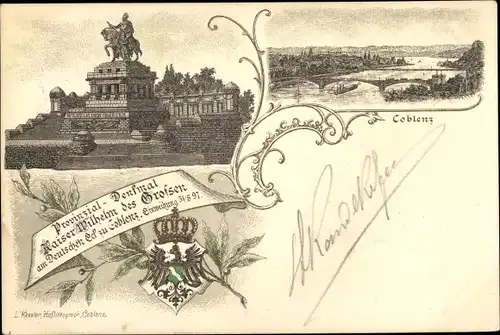 Coblenz
Provinzial-Denkmal
Kaiser Wilhelm des Großen
am Deutschen Eck zu Coblenz. Einweihung 31.8.97.
L. Kessler, Hoflithograph, Coblenz.